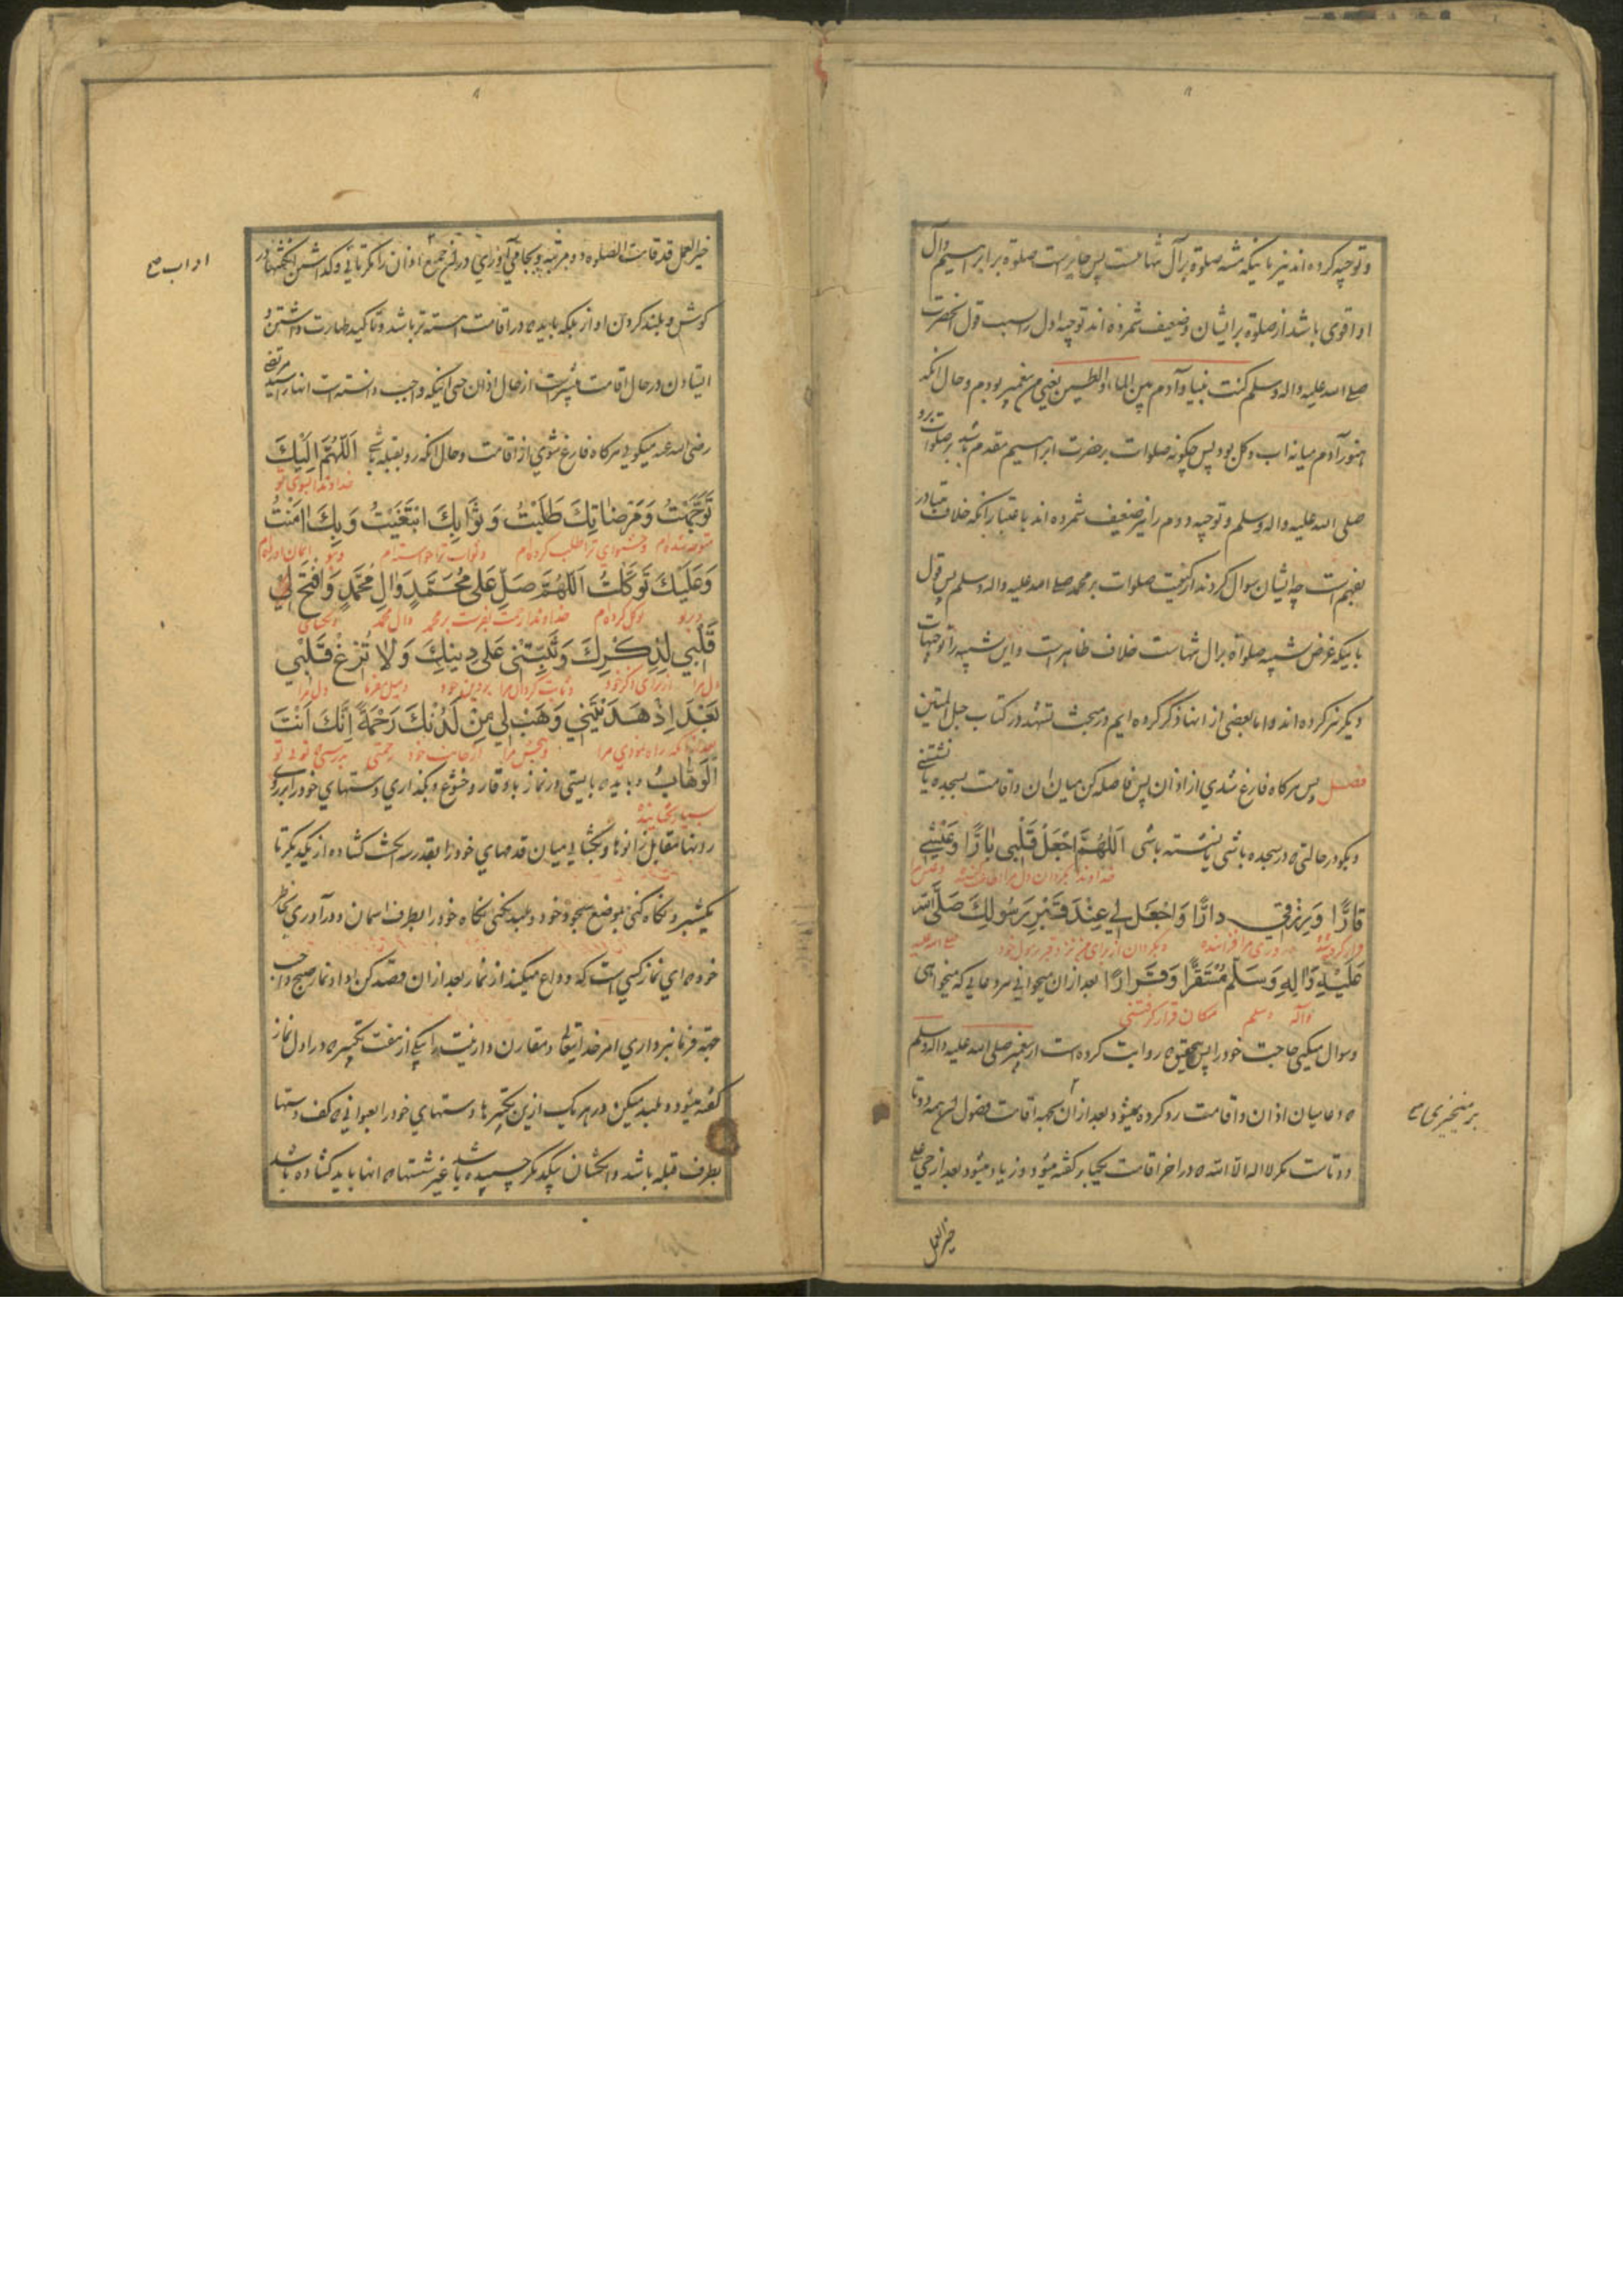 و توجیه کرده اند نیز باینکه مشبه صلوة برآل تنهاست پس جایز است صلوة بر ابراهیم و آل
او اقوی باشد از صلوة بر ایشان و ضعیف شمرده اند توجیه اول را بسبب قول انحضرت
صلی الله علیه واله وسلم کنت نبیا وآدم بین الماء والطین یعنی من پیغمبر بودم و حال انکه
هنوز آدم میانه اب و کل بود پس چکونه صلوات بر حضرت ابراهیم مقدم باشد بر صلوات برو
صلی الله علیه واله وسلم و توجیه دوم را نیز ضعیف شمرده اند باعتبار انکه خلاف متبادر
بفهم است چه ایشان سوال کردند از کیفیت صلوات بر محمد صلی الله علیه واله وسلم پس قول
باینکه غرض تشبیه صلواة برال تنهاست خلاف ظاهر است و این تشبیه را توجیهات
دیکر نیز کرده اند و ما بعضی از انها ذکر کرده ایم در مبحث تشهد در کتاب حبل المتین
فصل پس هرکاه فارغ شدی از اذان پس فاصله کن میان ان و اقامت بسجده یا نشستنی
و بکو در حالتی که در سجده باشی یا نشسته باشی اَللّٰهُمَّ اجْعَلْ قَلْبی بٰارًّا وَعَیْشی
خداوندا بکردان دل مرا
قٰارًّا وَرِزْقی دارًّا وَاجْعَل لی عِنْدَ قَبْرِ رَسُولِكَ صَلَّی اللّٰه
و بکردان از برای من نزد قبر رسول خود صلی الله علیه
عَلَیْهِ وَاٰلِهِ وَسَلَّمَ مُسْتَقَرًّا وَقَرارًا بعد ازان میخوانی هر دعایی که میخواهی
واله وسلم مکان قرار کرفتنی
و سوال میکنی حاجت خود را پس بتحقیق که روایت کرده است از پیغمبر صلی الله علیه واله وسلم
که دعا میان اذان و اقامت رد کرده نمیشود بعد ازان اقامت فصول ان همه دوتا
دوتاست مکر لا اله الا الله که در اخر اقامت یکبار کفته میشود و زیاد میشود بعد از حی علی
بر میخیزی
خیر العمل
خیر العمل قد قامت الصلوة دو مرتبه و بجا می آوری در جمیع اذان را مکر و کذاشتن انکشتها در
کوش و بلند کردن اواز بلکه باید که در اقامت اهسته تر باشد و تاکید طهارت داشتن و
ایستادن در حال اقامت بیشتر است از حال اذان حتی اینکه واجب دانسته است انها را سید مرتضی
رضی الله عنه میکوید هرکاه فارغ شوی از اقامت و حال انکه رو بقبله اَللّٰهُمَّ اِلَیْكَ
خداوندا بسوی تو
تَوَجَّهْتُ وَمَرْضٰاتِكَ طَلَبْتُ وَثَوٰابِكَ ابْتَغَیْتُ وَبِكَ اٰمَنْتُ
متوجه شده ام و خشنودی ترا طلب کرده ام و ثواب ترا خواسته ام و بتو ایمان اورده ام
وَعَلَیْكَ تَوَكَّلْتُ اَللّٰهُمَّ صَلِّ عَلیٰ مُحَمَّدٍ وَاٰلِ مُحَمَّدٍ وَافْتَحْ لی
و بر تو توکل کرده ام خداوندا رحمت بفرست بر محمد وال محمد و بکشای
قَلْبی لِذِكْرِكَ وَثَبِّتْنی عَلیٰ دینِكَ وَلٰا تُزِغْ قَلْبی
دل مرا از برای ذکر خود و ثابت کردان مرا بر دین خود و میل مفرما دل مرا
بَعْدَ اِذْ هَدَیْتَنی وَهَبْ لی مِنْ لَدُنْكَ رَحْمَةً اِنَّكَ اَنْتَ
بعد از انکه راه نمودی مرا و ببخش مرا از جانب خود رحمتی بدرستی که تو تو
الْوَهّٰابُ و باید که بایستی در نماز با وقار و خشوع و بکذاری دستهای خود را بر روی
بسیار بخشاینده
رانها مقابل زانوها و بکشایی میان قدمهای خود را بقدر سه انکشت کشاده از یکدیکر تا
یکشبر و نکاه کنی بموضع سجود خود و بلند نکنی نکاه خود را بطرف اسمان و در آوری بخاطر
خود که ای نماز کسی است که وداع میکند از نماز بعد ازان قصد کن باداء نماز صبح واجب
جهة فرمانبرداری امر خدایتعالی و مقارن دار نیت را بیکی از هفت تکبیر که در اول نماز
کفته میشود و بلند میکنی در هر یک ازین تکبیرها دستهای خود را بعنوانی که کف دستها
بطرف قبله باشد و انکشتان بیکدیکر چسبیده باشد غیر شستها که انها باید کشاده باشد
اداب